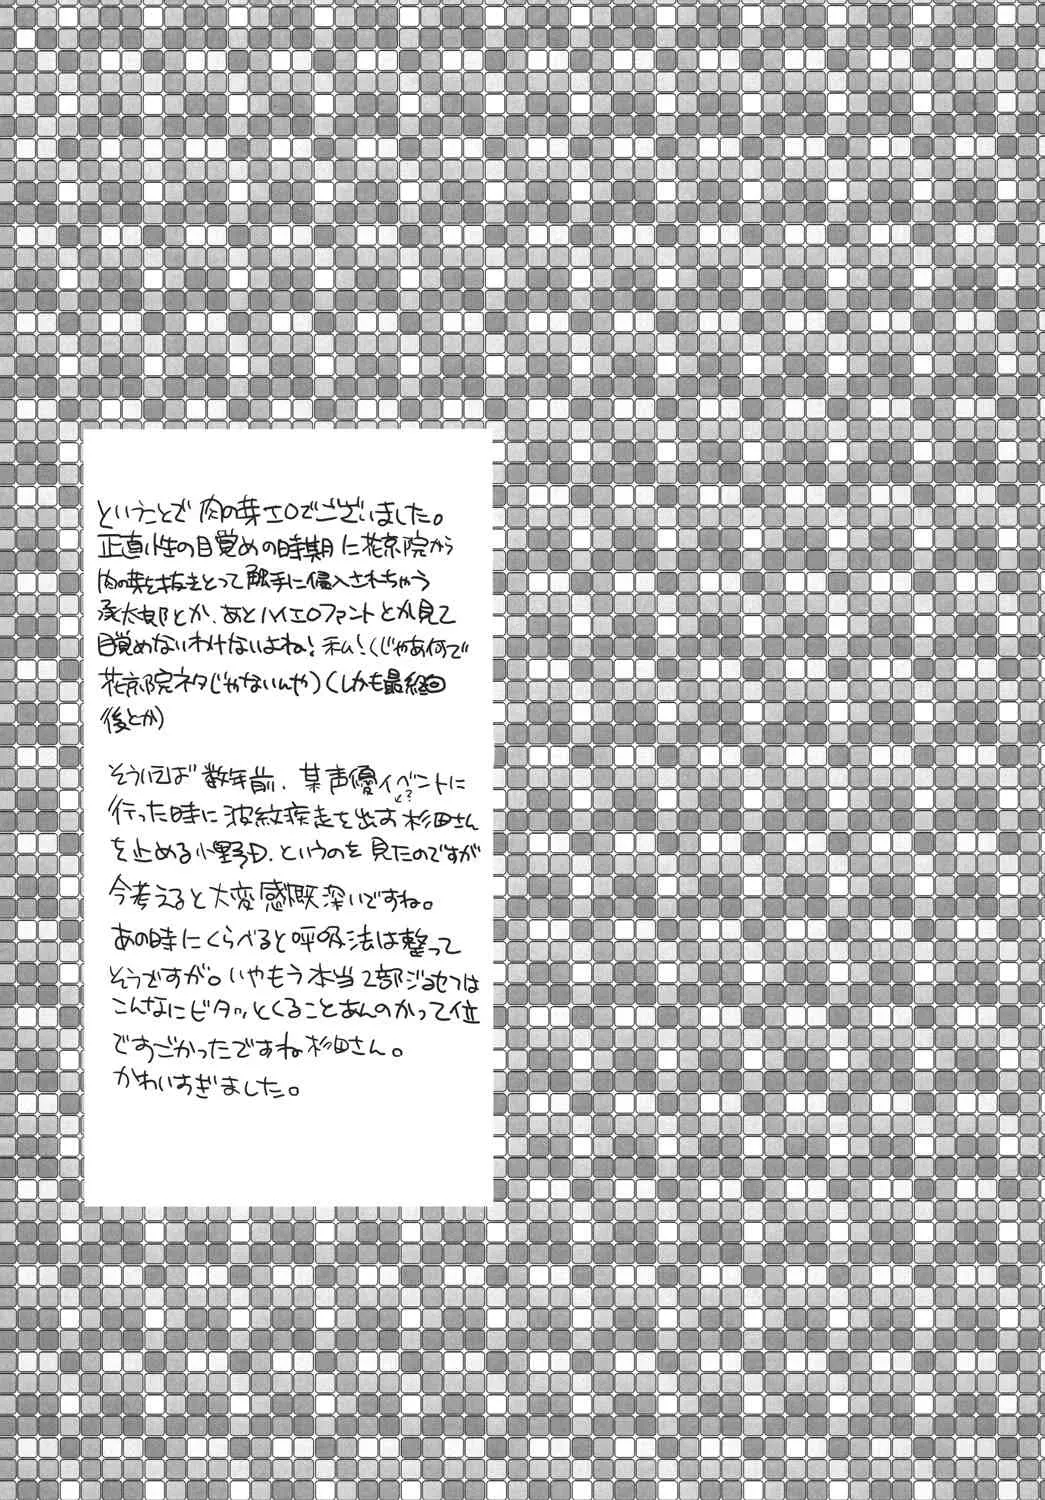 ということで 肉の芽エロでございました。
正直小生の目覚めの時期に花京院から
肉の芽を抜きとって触手に侵入されちゃう
承太郎とか、あとハイエロファントとか見て
目覚めないわけないよね！私！(じゃあ何で
花京院ネタじゃないんや)(しかも最終回
後とか)
そういえば 数年前、某声優イベントに
↓?
行った時に波紋疾走を出す杉田さん
を止める小野D、というのを見たのですが
今考えると大変感慨深いですね。
あの時にくらべると呼吸法は整って
そうですが。いやもう本当2部ジョセフは
こんなにビタッとくることあんのかって位
ですごかったですね杉田さん。
かわいすぎました。